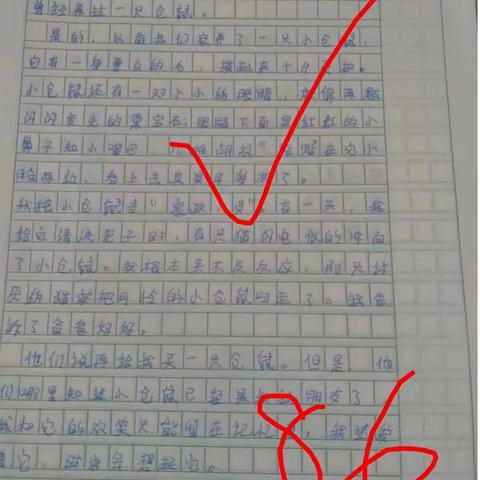 曾经养过一只仓鼠。
是的，以前我们家养了一只小仓鼠，
它有一身雪白的毛，摸起来十分
小仓鼠还有一双小小的眼睛，就像两颗
闪闪发光的黑宝石；眼睛下面是红红的小
鼻子和小嘴巴，"
我把小仓鼠当"家 有一天，我
给它清洗笼子时，有只猫闪电似的冲向
了小仓鼠。我根本来不及反应，那只讨
厌的猫就把可怜的小仓鼠叼走了。我告
诉了爸爸妈妈。
他们说再给我买一只仓鼠。但是，他
们哪里知道小仓鼠已经是我的朋友了，
我和它的欢笑只能留在记忆里，我
它，时常会想起它。
86